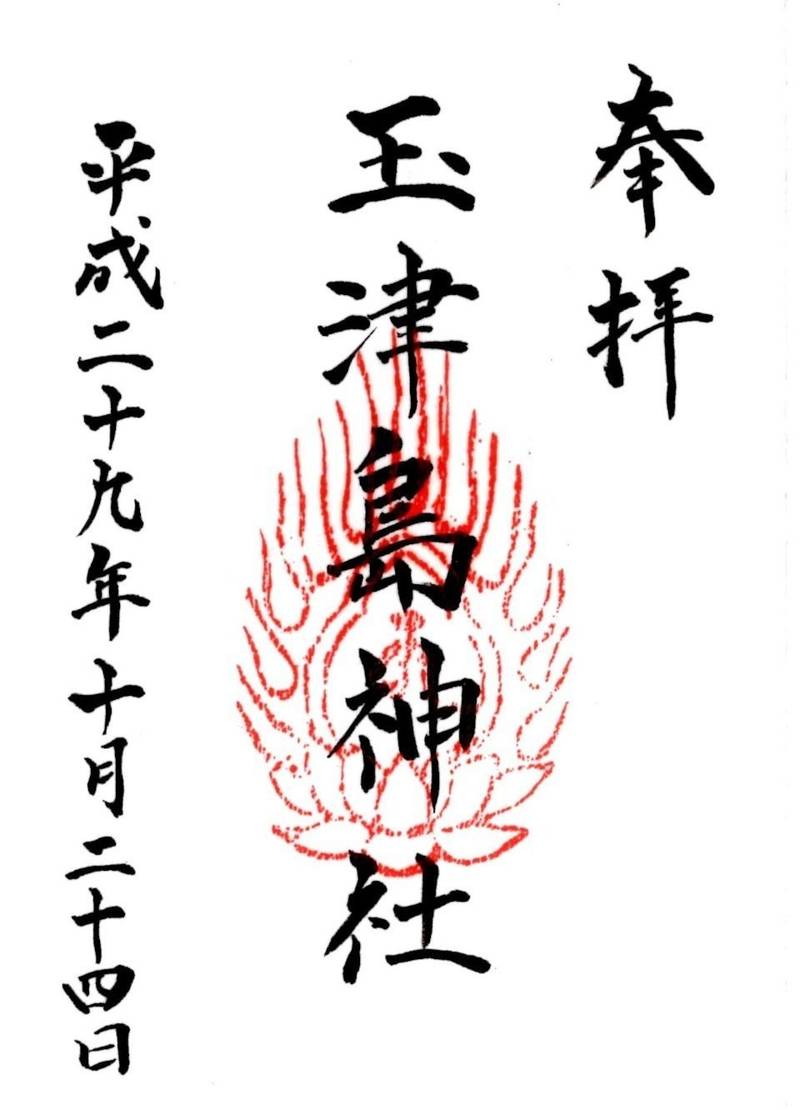 奉拝
玉津島神社
平成二十九年十月二十四日